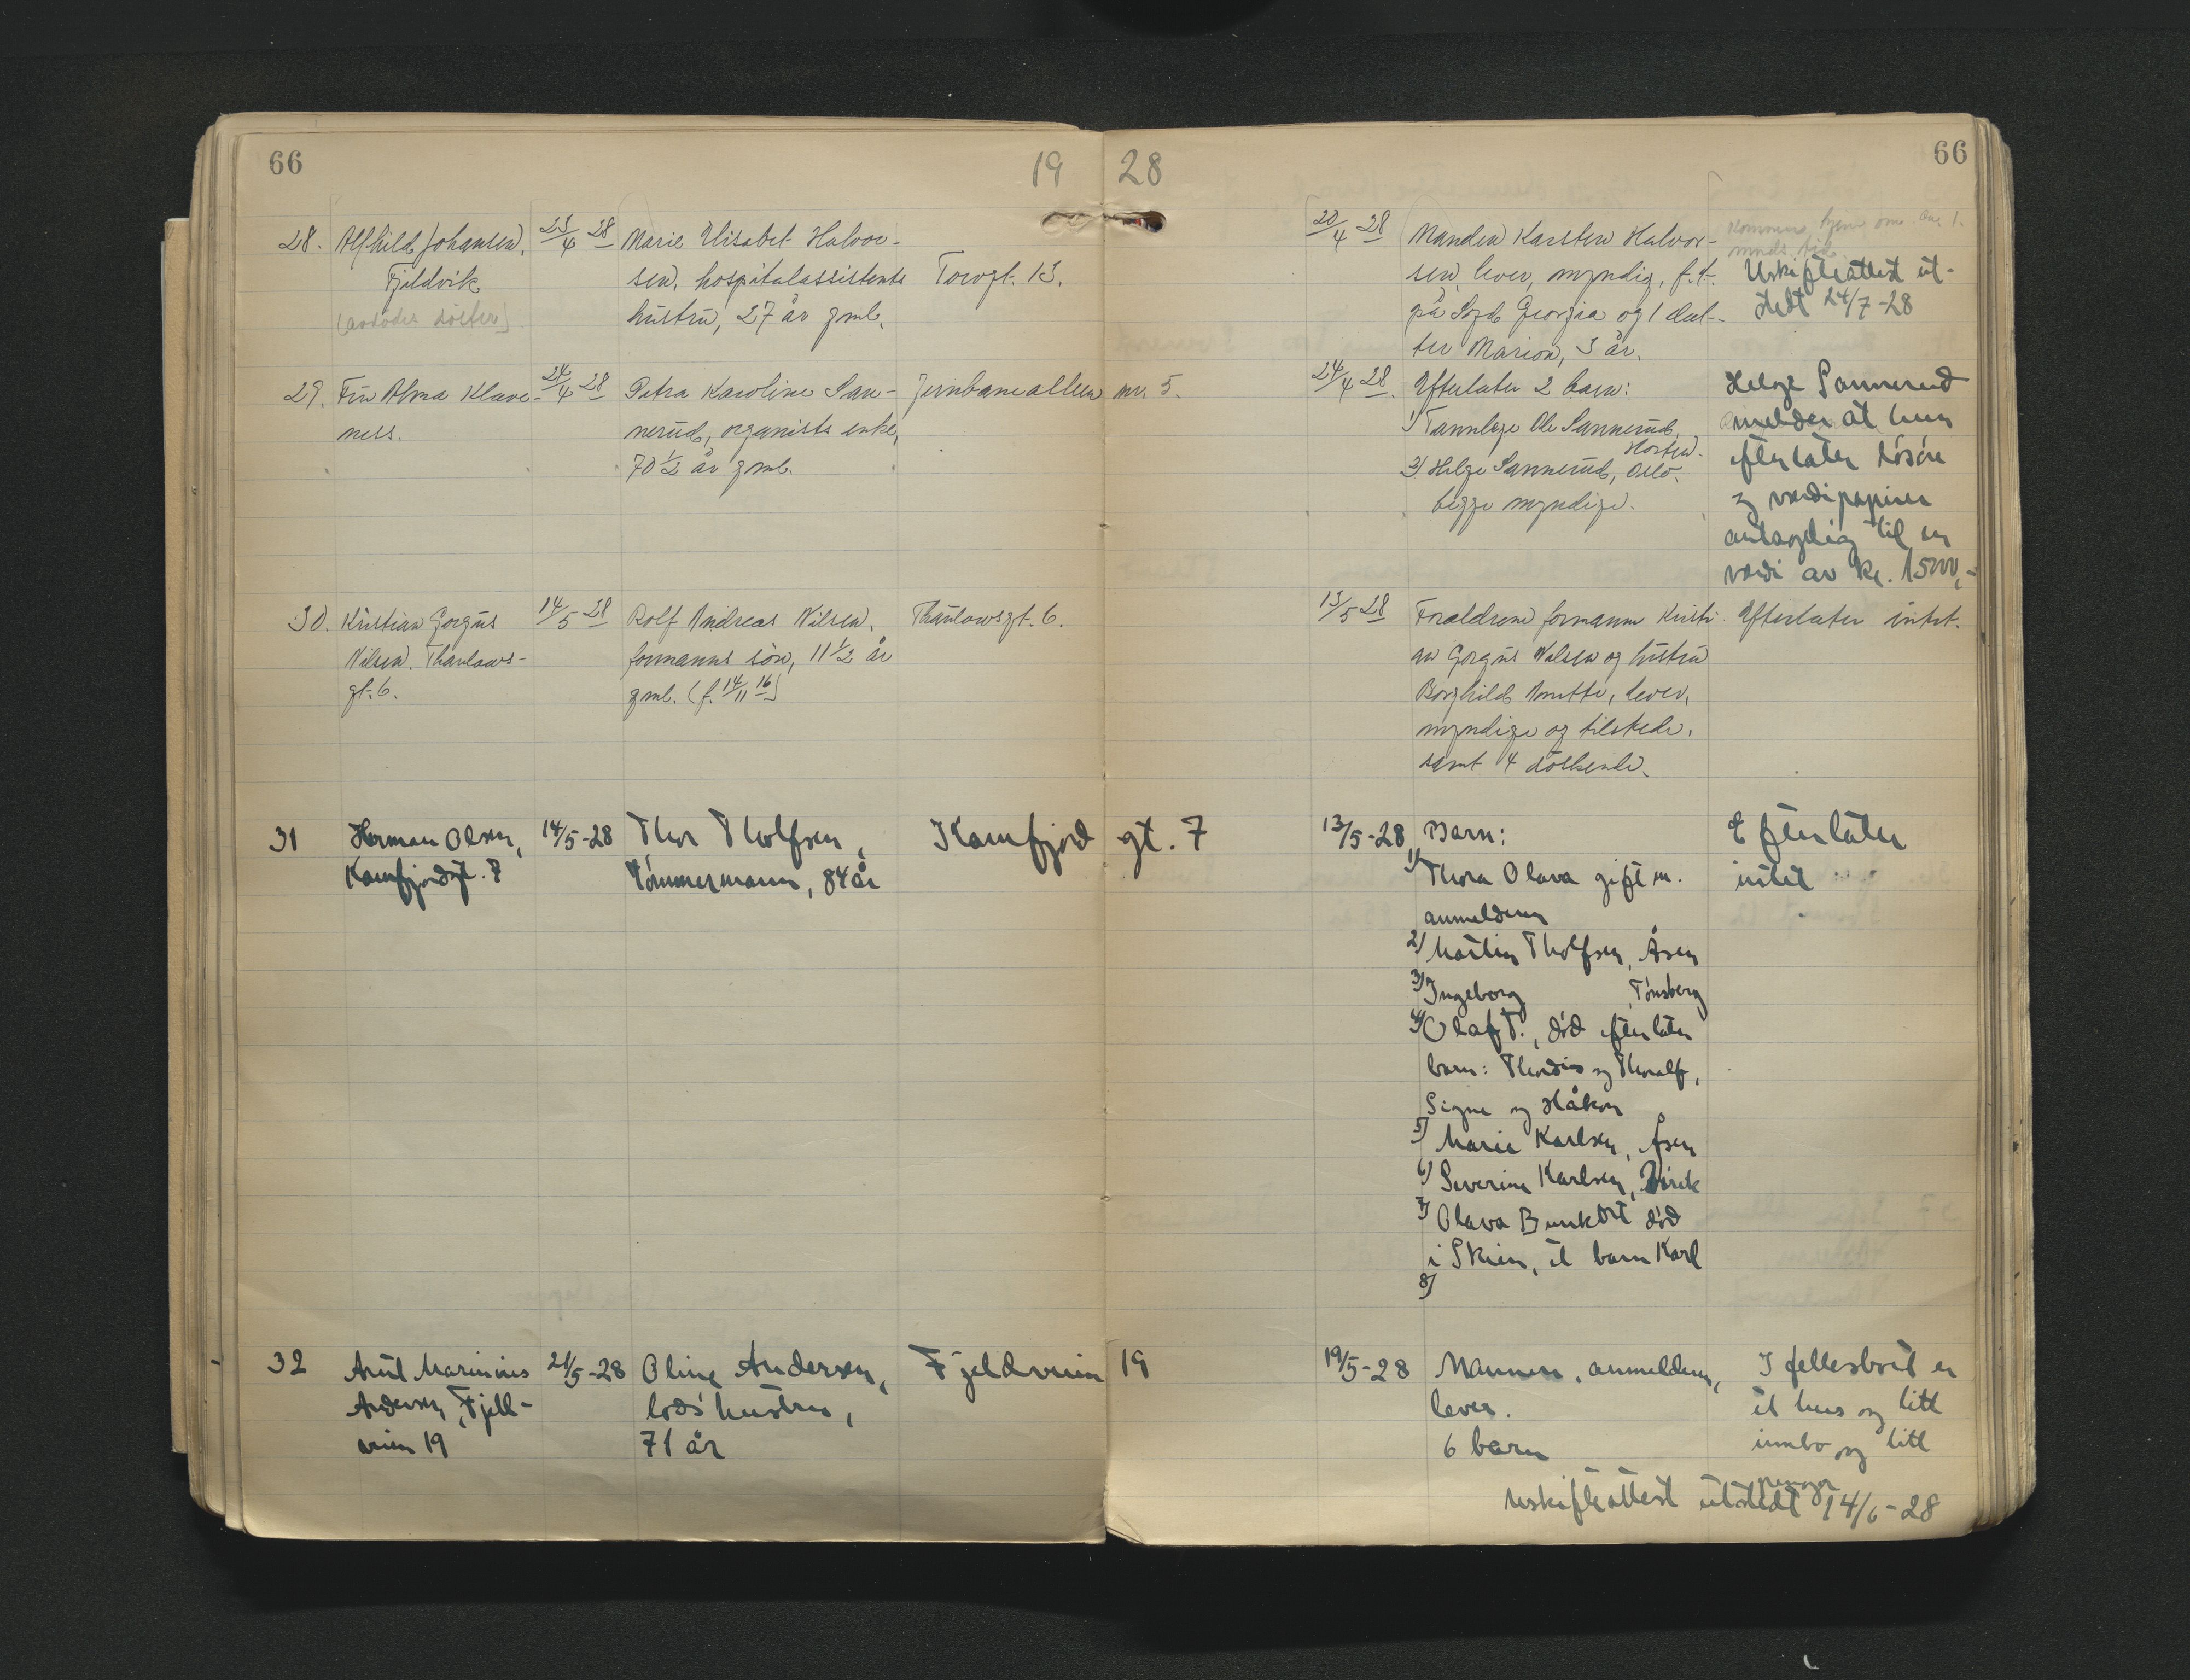 66
19 28
66
28. Alfhild Johansen, 23/4 28 Marie Elisabet Halvor- 20/4 28 Manden Karsten Halvor-
Fjeldvik sen, hospitalassistents Torvgt. 13. sen, lever, myndig, f.t. Uskifteattest ut-
(avdødes søster) hustru, 27 år gml. på Syd Georgia og 1 dat- stedt 24/7-28
ter Marion, 3 år.
29. Fru Alma Klave- 24/4 28 Petra Karoline San- Jernbanealleen nr. 5. 24/4 28. Efterlater 2 barn: Helge Sannerud
ness. nerud, organists enke, 1) Tannlæge Ole Sannerud, melder at hun
Horten.
70 1/2 år gml. 2) Helge Sannerud, Oslo. efterlater løsøre
begge myndige. og verdipapirer
antagelig til en
verdi av kr. 15000,-
30. Kristian Gorgus 14/5 28 Rolf Andreas Nilsen, Thaulowsgt. 6. 13/5 28 Forældrene formann Kristi- Efterlater intet.
Nilsen. Thaulows- formanns søn, 11 1/2 år an Gorgus Nilsen og hustru
gt. 6. gml. (f. 14/11 16) Borghild Anette, lever,
myndige og tilstede.
samt 4 søskende.
31 Herman Olsen, 14/5-28 Thor Tholfsen, Kamfjord gt. 7 13/5-28 Barn: Efterlater
Kamfjordgt. 7 tømmermann, 84 år 1) Thora Olava gift m. intet
anmelderen
2) Martin Tholfsen, Åsen
3) Ingeborg Tønsberg
4) Olaf T., død efterlater
barn: Thordis og Thoralf,
Signe og Håkon
5) Marie Karlsen, Åsen
6) Severine Karlsen,
7) Olava død
i Skien, et barn Karl
8)
32 Arnt Marinius 21/5-28 Oline Andersen, Fjeldveien 19 19/5-28 Mannen, anmelderen, I fellesboet er
Andersen, Fjell- los' hustru, lever. et hus og litt
veien 19 71 år 6 barn innbo og litt
penger
Uskifteattest utstedt 14/6-28